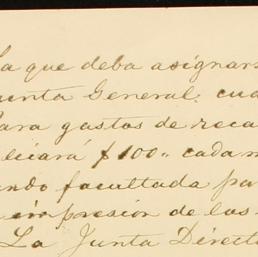 la que deba asignars
unta General, cua
ara gastos de reca
licará $100.. cada m
ndo facultada pa
impresión de las
La Junta Directo